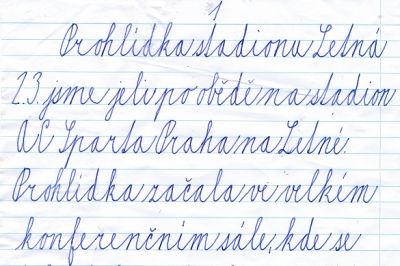 1
Prohlídka stadionu Letná
2.3. jsme jeli po obědě na stadion
AC Sparta Praha na Letné.
Prohlídka začala ve velkém
konferenčním sále, kde se